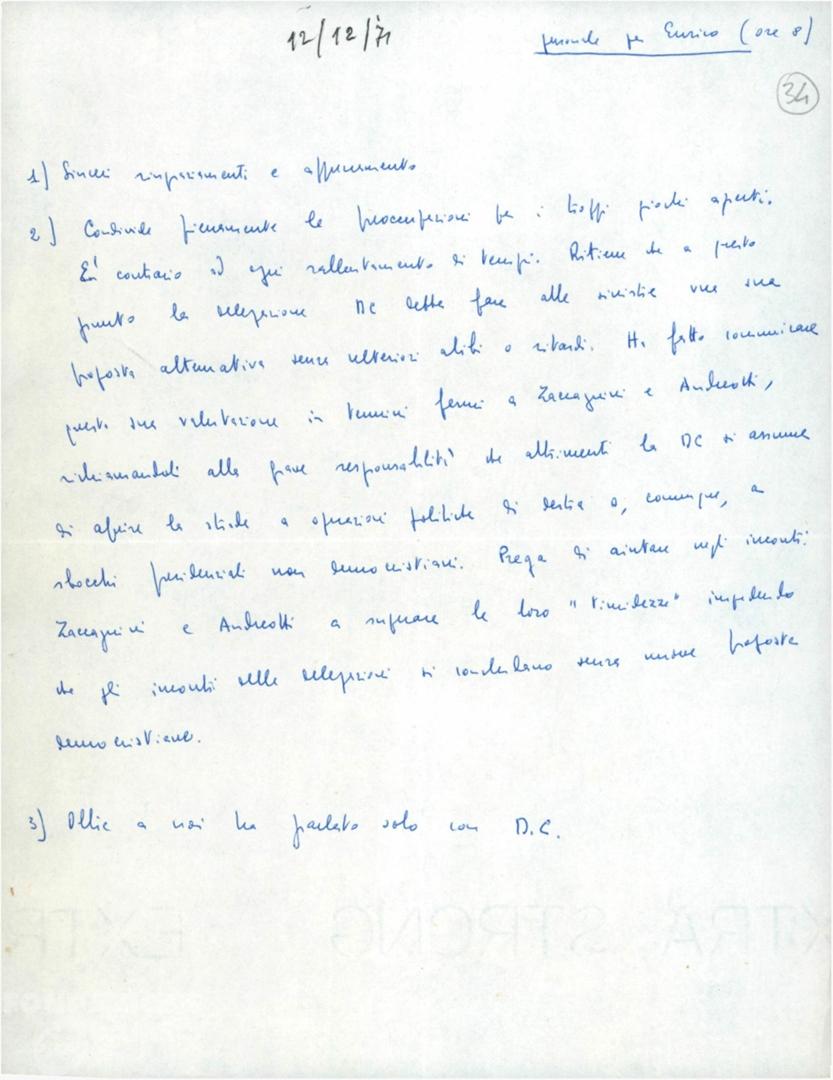 12/12/71
personale per Enrico (ore 8)
34
1) Sinceri ringraziamenti e apprezzamento
2) Condivide pienamente le preoccupazioni per i troppi giochi aperti.
E' contrario ad ogni rallentamento di tempi. Ritiene che a questo
punto la delegazione DC debba fare alle sinistre una sua
proposta alternativa senza ulteriori alibi o ritardi. Ha fatto comunicare
questa sua valutazione in termini fermi a Zaccagnini e Andreotti,
richiamandoli alla grave responsabilità che altrimenti la DC si assume
di aprire la strada a operazioni politiche di destra o, comunque, a
sbocchi presidenziali non democristiani. Prega di aiutare negli incontri
Zaccagnini e Andreotti a superare le loro "timidezze" impedendo
che gli incontri delle delegazioni si concludano senza nuove proposte
democristiane.
3) Oltre a noi ha parlato solo con D.C.
EXTRA STRONG EXTR